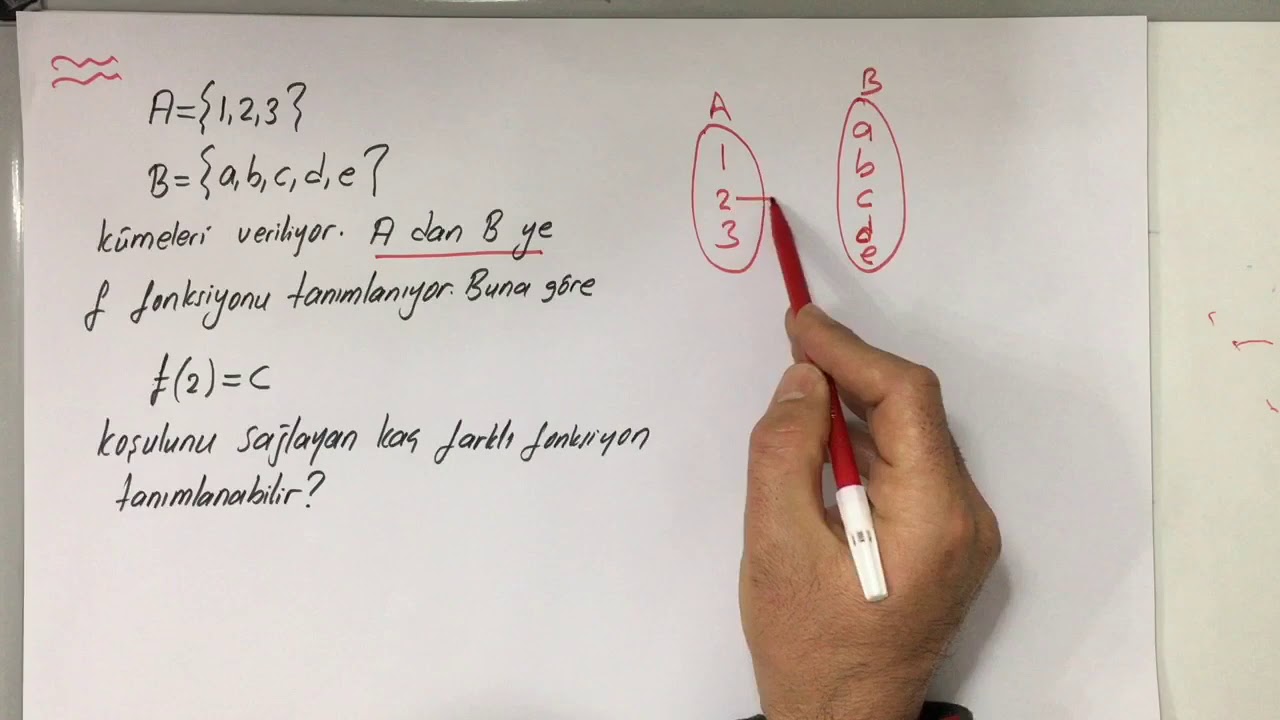 A={1,2,3}
B={a,b,c,d,e}
kümeleri veriliyor. A dan B ye
f fonksiyonu tanımlanıyor. Buna göre
f(2)=c
koşulunu sağlayan kaç farklı fonksiyon
tanımlanabilir?
A
1
2
3
B
a
b
c
d
e